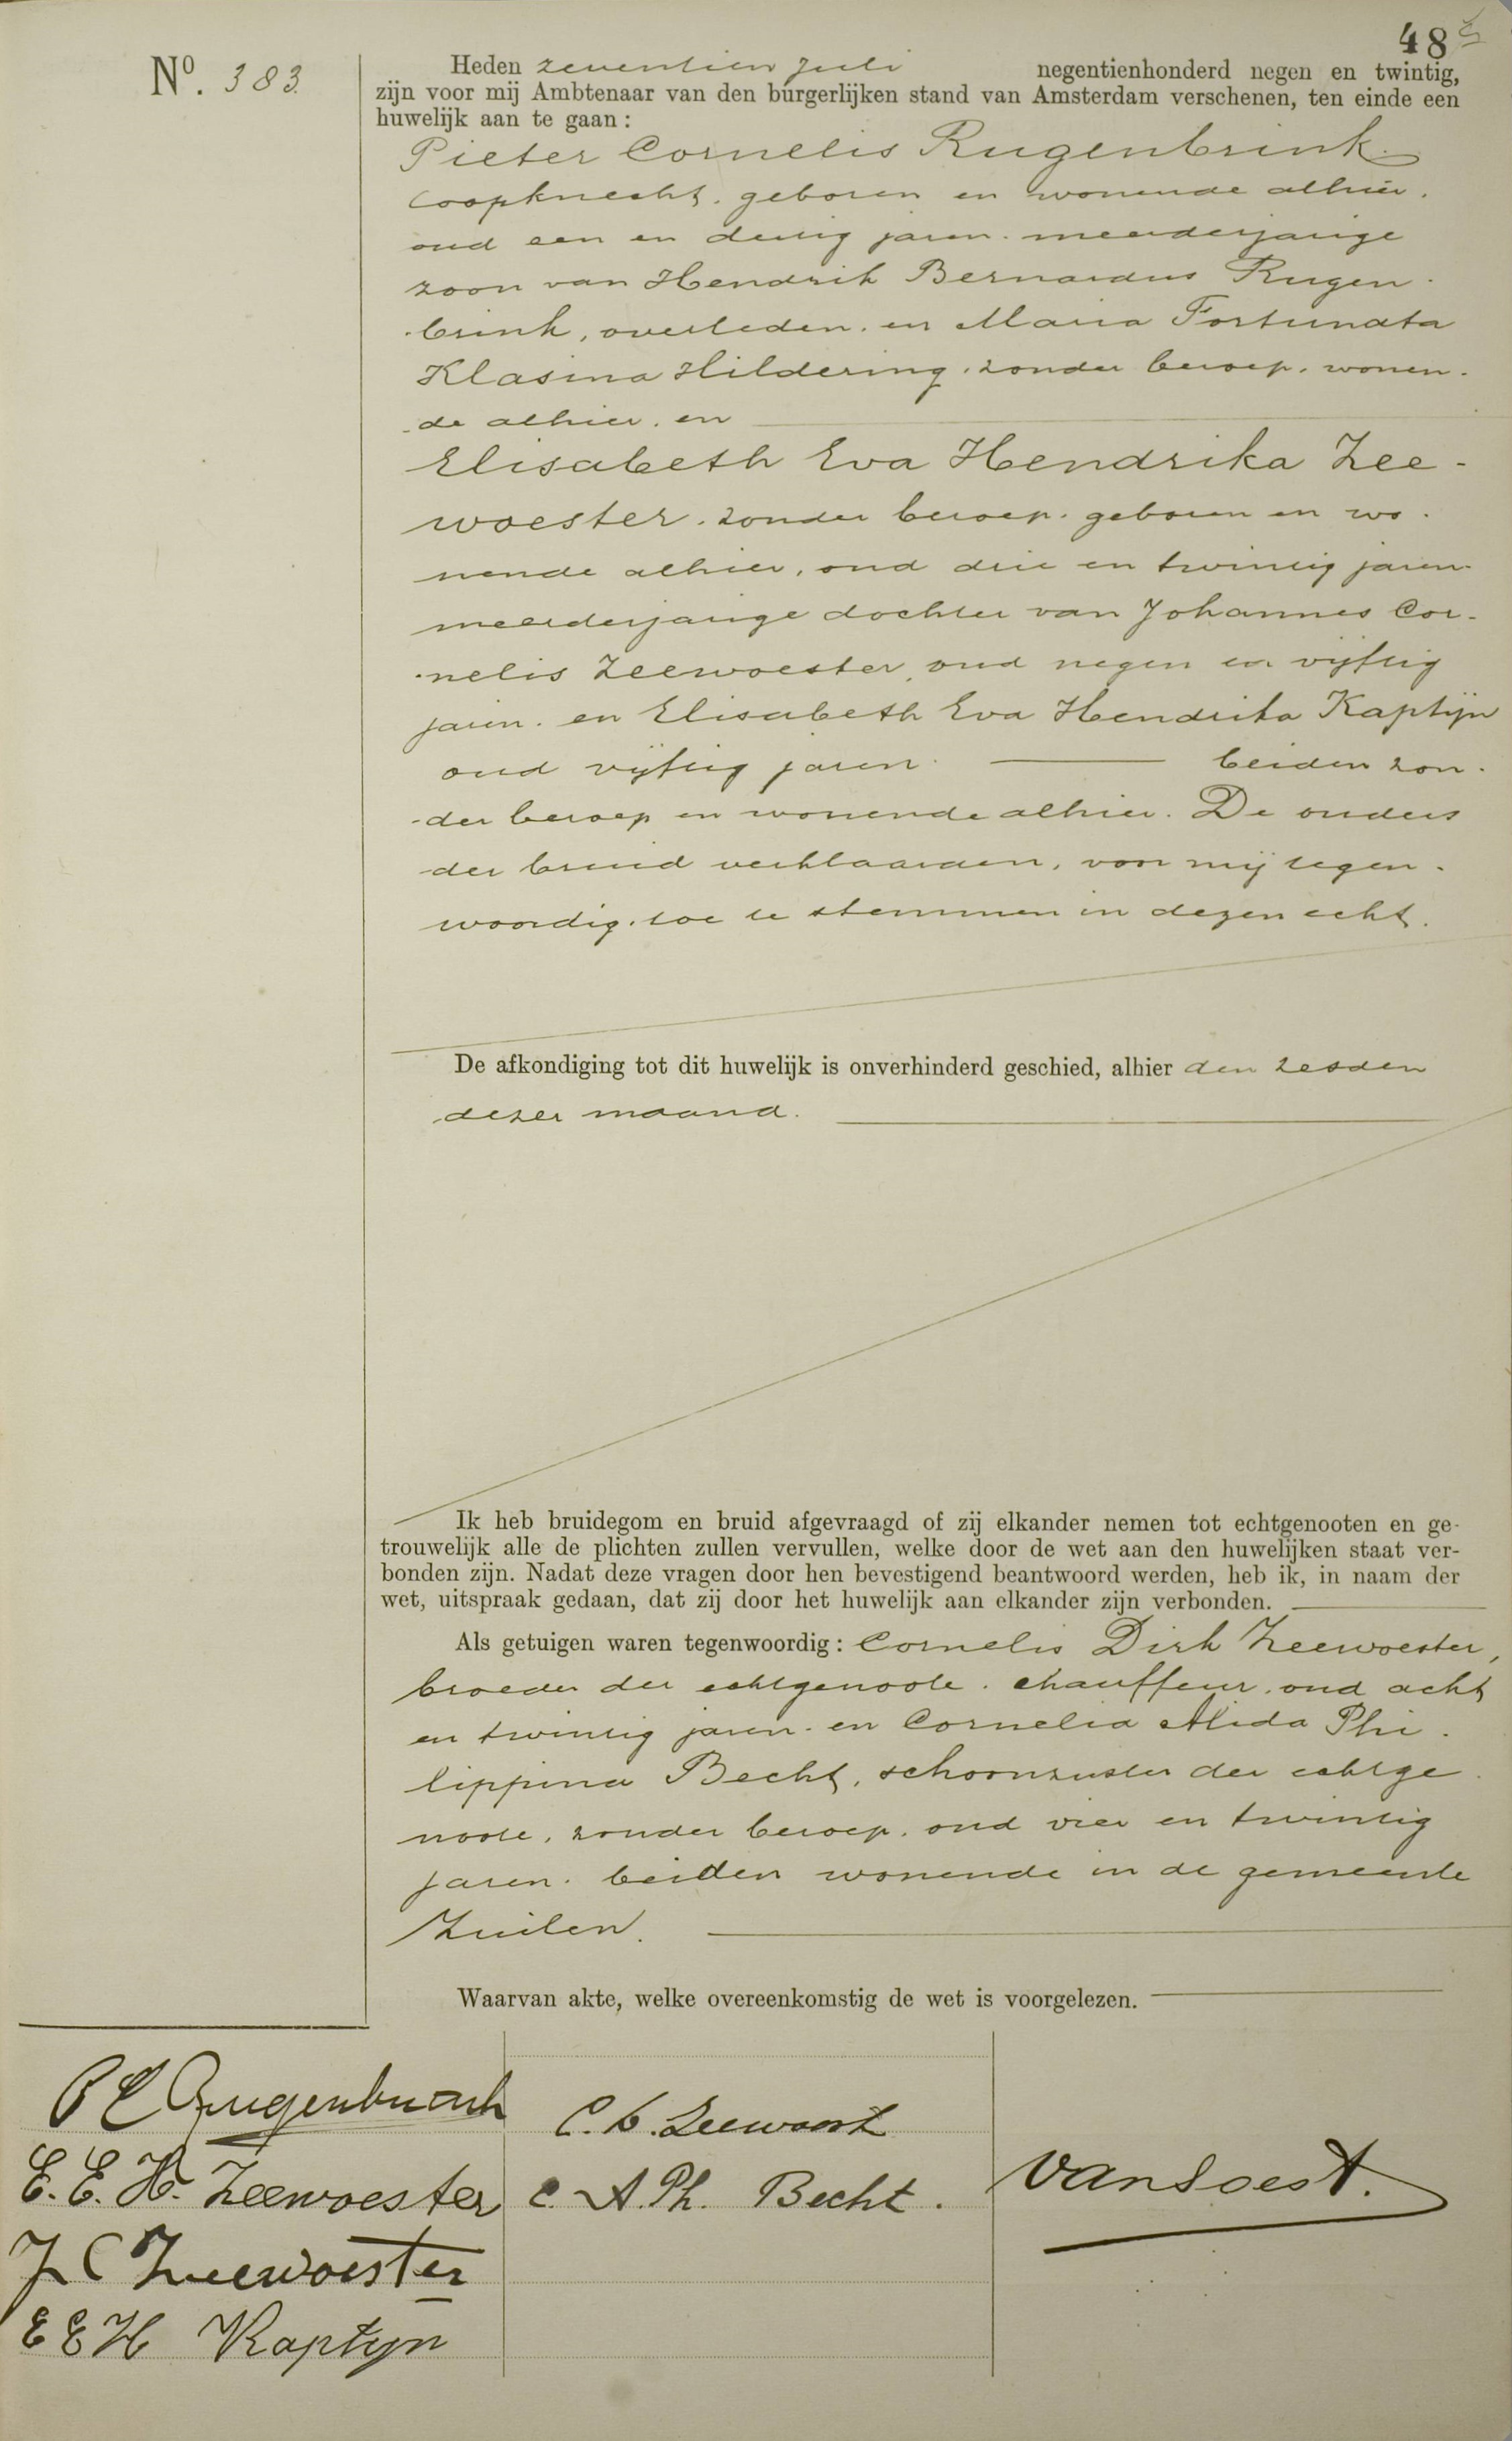 48
Nº. 383.
Heden zeventien Juli negentienhonderd negen en twintig,
zijn voor mij Ambtenaar van den burgerlijken stand van Amsterdam verschenen, ten einde een
huwelijk aan te gaan:
Pieter Cornelis Rugenbrink.
loopknecht, geboren en wonende alhier,
oud een en dertig jaren, meerderjarige
zoon van Hendrik Bernardus Rugen-
brink, overleden, en Maria Fortunata
Klasina Hildering, zonder beroep, wonen-
de alhier, en
Elisabeth Eva Hendrika Zee-
woester, zonder beroep, geboren en wo-
nende alhier, oud drie en twintig jaren
meerderjarige dochter van Johannes Cor-
nelis Zeewoester, oud negen en vijftig
jaren, en Elisabeth Eva Hendrika Kaptijn
oud vijftig jaren beiden zon-
der beroep en wonende alhier. De ouders
der bruid verklaarden, voor mij tegen-
woordig, toe te stemmen in dezen echt.
De afkondiging tot dit huwelijk is onverhinderd geschied, alhier den zesden
dezer maand.
Ik heb bruidegom en bruid afgevraagd of zij elkander nemen tot echtgenooten en ge-
trouwelijk alle de plichten zullen vervullen, welke door de wet aan den huwelijken staat ver-
bonden zijn. Nadat deze vragen door hen bevestigend beantwoord werden, heb ik, in naam der
wet, uitspraak gedaan, dat zij door het huwelijk aan elkander zijn verbonden.
Als getuigen waren tegenwoordig: Cornelis Dirk Zeewoester,
broeder der echtgenoote, chauffeur, oud acht
en twintig jaren, en Cornelia Alida Phi-
lippina Becht, schoonzuster der echtge-
noote, zonder beroep, oud vier en twintig
jaren, beiden wonende in de gemeente
Zuilen.
Waarvan akte, welke overeenkomstig de wet is voorgelezen.
P C Rugenbrink
E. E. H. Zeewoester
J C Zeewoester
E E H Kaptyn
C. A. Ph. Becht.
van Soest.